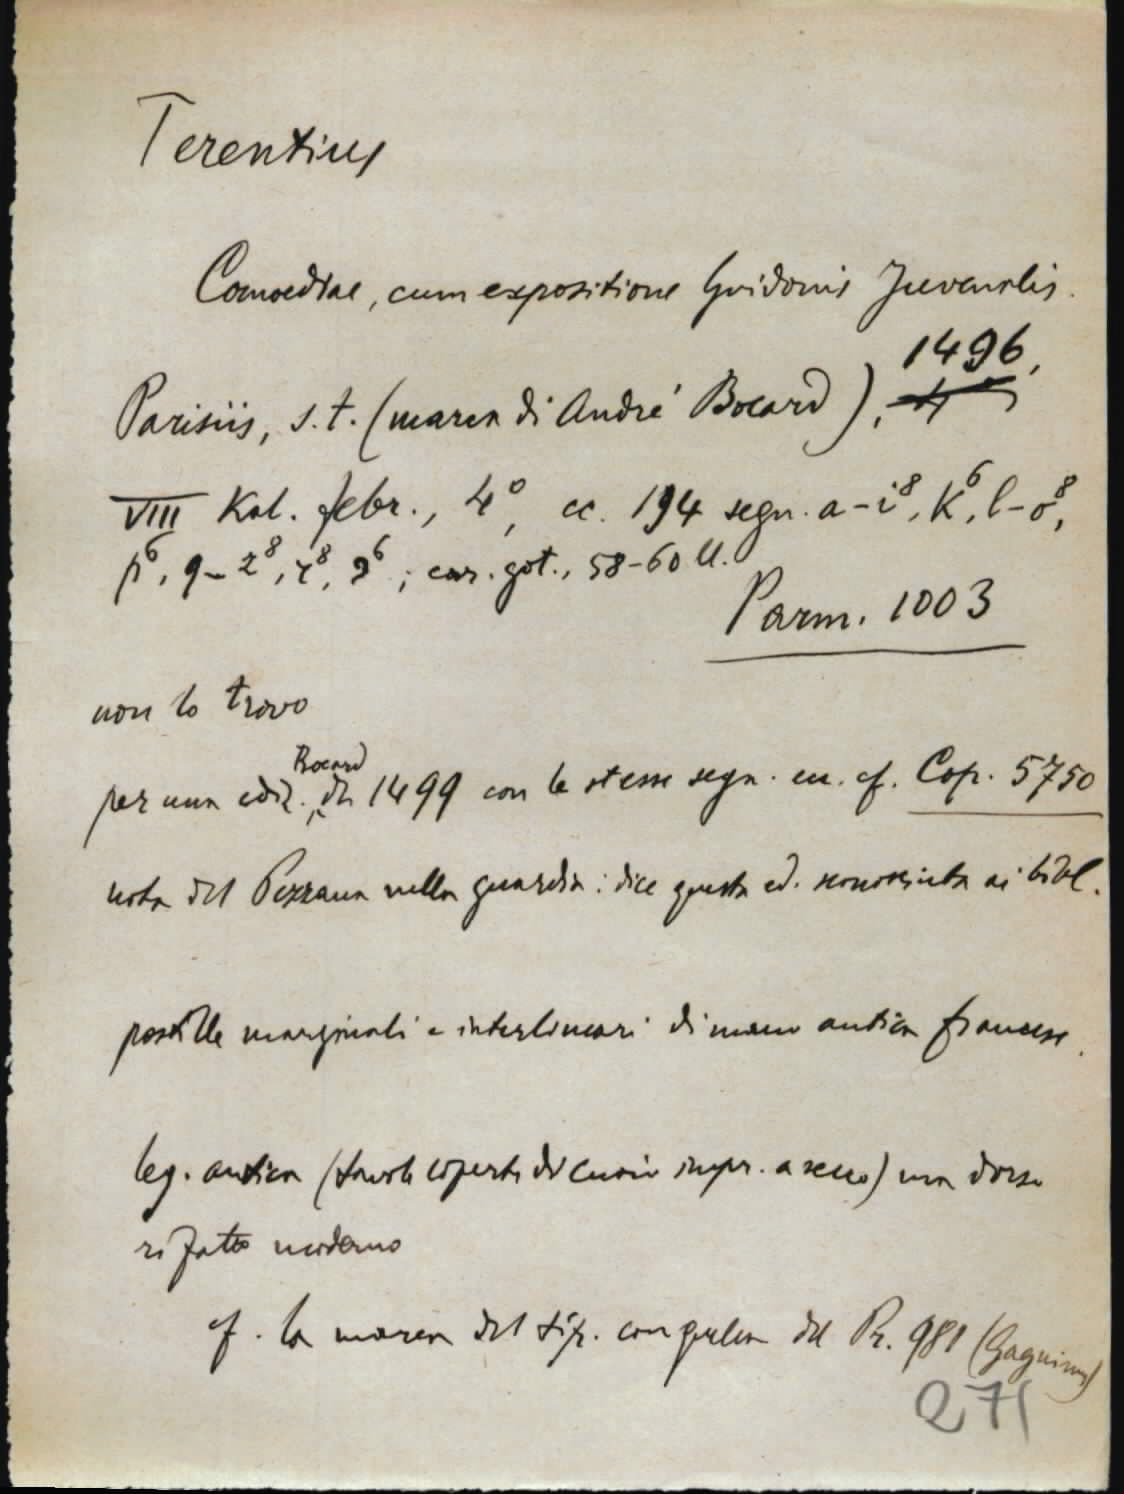 Terentius
Comoediae, cum expositione Guidonis Juvenalis.
1496,
Parisiis, s.t. (marca di André Bocard),
VIII Kal. febr., 4°, cc. 194 segn. a-i⁸, K⁶, l-o⁸,
p⁶, q-z⁸, ⁸, 9⁶; car. got., 58-60 ll.
Parm. 1003
non lo trovo
Bocard
per una ediz. di 1499 con le stesse segn. cf. Cop. 5750
nota del Pezzana nella guardia: dice questa ed. sconosciuta ai bibl.
postille marginali e interlineari di mano antica francese.
leg. antica (tavole coperte di cuoio impr. a secco) ma dorso
rifatto moderno
cf. la marca del tip. con quella del Pr. 981 (Gaguinus)
271